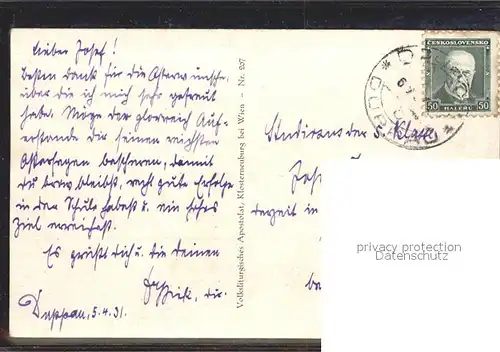 Lieber Josef!
Besten Dank für die Osterwünsche,
über die ich mich sehr gefreut
habe. Möge der glorreich Aufer-
standene dir seinen reichsten
Ostersegen bescheren, damit
du brav bleibst, recht gute Erfolge
in der Schule habest u. ein hohes
Ziel erreichest.
Es grüßt dich u. die deinen
dir.
Duppau, 5.4.31.
Volksliturgisches Apostolat, Klosterneuburg bei Wien - Nr. 207
ČESKOSLOVENSKO
50 HALÉŘŮ 50
Studiosus der Klasse
Jos
derzeit in
privacy protection
Datenschutz